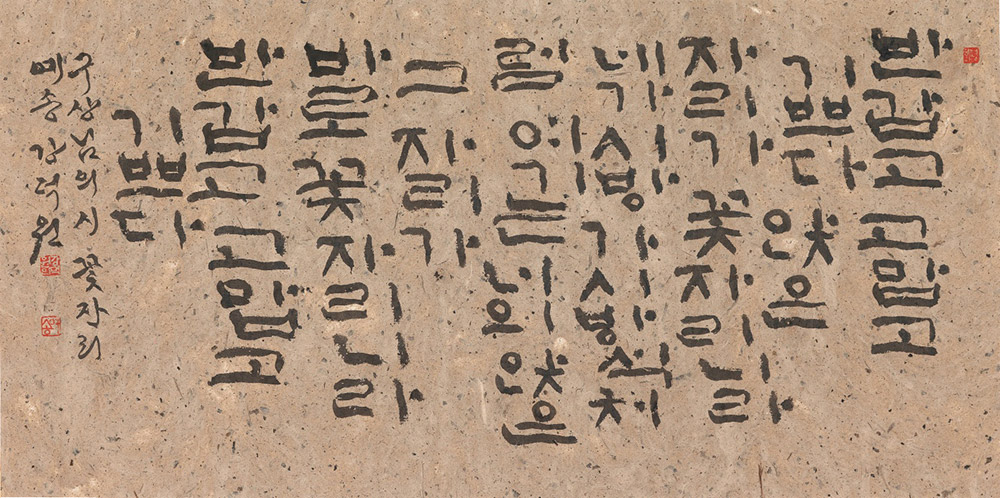 반갑고 고맙고
기쁘다 앉은
자리가 꽃자리니라
네가 시방 가시방석처
럼 여기는 너의 앉은
그 자리가
바로 꽃자리니라
반갑고 고맙고
기쁘다
구상님의 시 꽃자리
강덕원